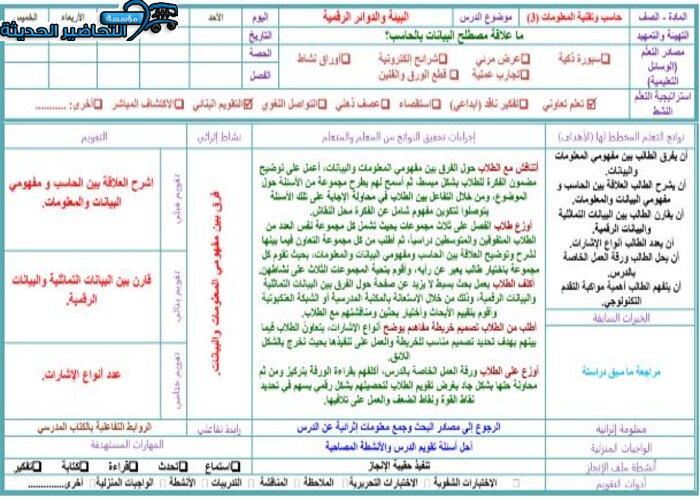 مؤسسة
التحاضير الحديثة
المادة - الصف
حاسب وتقنية المعلومات (3)
موضوع الدرس
البيئة والدوائر الرقمية
اليوم
الأحد
الأربعاء
الخميس
التهيئة والتمهيد
ما علاقة مصطلح البيانات بالحاسب؟
التاريخ
مصادر التعلم
(الوسائل
التعليمية)
سبورة ذكية
عرض مرئي
شرائح إلكترونية
أوراق نشاط
تجارب عملية
قطع الورق والفلين
الحصة
الفصل
استراتيجية التعلم
النشط
تعلم تعاوني
تفكير ناقد (ابداعي)
استقصاء
عصف ذهني
التواصل اللغوي
التقويم البنائي
الاكتشاف المباشر
أخرى: ............
نواتج التعلم المخطط لها (الأهداف)
إجراءات تحقيق النواتج من المعلم والمتعلم
نشاط إثرائي
التقويم
أن يفرق الطالب بين مفهومي المعلومات
والبيانات.
أن يشرح الطالب العلاقة بين الحاسب و
مفهومي البيانات والمعلومات.
أن يقارن الطالب بين البيانات التماثلية
والبيانات الرقمية.
أن يعدد الطالب أنواع الإشارات.
أن يحل الطالب ورقة العمل الخاصة
بالدرس.
أن يتفهم الطالب أهمية مواكبة التقدم
التكنولوجي.
الخبرات السابقة
مراجعة ما سبق دراستة
أتناقش مع الطلاب حول الفرق بين مفهومي المعلومات والبيانات، أعمل على توضيح
مضمون الفكرة للطلاب بشكل مبسط، ثم أسمح لهم بطرح مجموعة من الأسئلة حول
الموضوع، ومن خلال التفاعل بين الطلاب في محاولة الإجابة على تلك الأسئلة
يتوصلوا لتكوين مفهوم شامل عن الفكرة محل النقاش.
أوزع طلاب الفصل على ثلاث مجموعات بحيث تشمل كل مجموعة نفس العدد من
الطلاب المتفوقين والمتوسطين دراسياً، ثم أطلب من كل مجموعة التعاون فيما بينها
لشرح وتوضيح العلاقة بين الحاسب ومفهومي البيانات والمعلومات، بحيث تقوم كل
مجموعة باختيار طالب يعبر عن رأيه، وأقوم بتحية المجموعات الثلاث على نشاطهن.
أكلف الطلاب بعمل بحث بسيط لا يزيد عن صفحة حول الفرق بين البيانات التماثلية
والبيانات الرقمية، وذلك من خلال الاستعانة بالمكتبة المدرسية أو الشبكة العنكبوتية
وأقوم بتقييم الأبحاث وأختيار بحثين ومناقشتهم مع الطلاب.
أطلب من الطلاب تصميم خريطة مفاهيم يوضح أنواع الإشارات، يتعاون الطلاب فيما
بينهم بهدف تحديد تصميم مناسب للخريطة والعمل على تنفيذها بحيث تخرج بالشكل
اللائق.
أوزع على الطلاب ورقة العمل الخاصة بالدرس، أكلفهم بقراءة الورقة بتركيز ومن ثم
محاولة حلها بشكل جاد بغرض تقويم الطلاب لتحصيلهم بشكل رقمي يسهم في تحديد
نقاط القوة ونقاط الضعف والعمل على تلافيها.
فرق بين مفهومي المعلومات والبيانات.
تقويم قبلي
اشرح العلاقة بين الحاسب و مفهومي
البيانات والمعلومات.
تقويم بنائي
قارن بين البيانات التماثلية والبيانات
الرقمية.
تقويم ختامي
عدد أنواع الإشارات.
معلومة إثرائية
الرجوع إلى مصادر البحث وجمع معلومات إثرائية عن الدرس
رابط تفاعلي
الروابط التفاعلية بالكتاب المدرسي
الواجبات المنزلية
أحل أسئلة تقويم الدرس والأنشطة المصاحبة
المهارات المستهدفة
أنشطة ملف الإنجاز
تنفيذ حقيبة الإنجاز
استماع
تحدث
قراءة
كتابة
تفكير
أدوات التقويم
الاختبارات الشفوية
الاختبارات التحريرية
الملاحظة
المناقشة
التدريبات
الأنشطة
الواجبات المنزلية
أخرى............